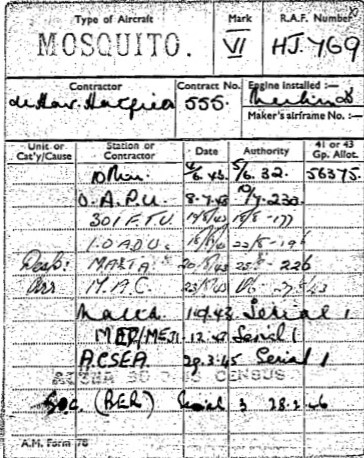 Type of Aircraft Mark R.A.F. Number
MOSQUITO. VI HJ.769
Contractor Contract No. Engine installed :—
de Hav. Hatfield 555. Merlin
Maker's airframe No. :—
Unit or Cat'y/Cause Station or Contractor Date Authority 41 or 43 Gp. Allot.
10 6.43 5/6.32. 56375.
O.A.P.U. 8.7.43 230.
301 F.T.U. 17/8/43 18/8-177
1.O.A.D.U. 22/8-196
Desp: MALTA 20/8/43 25/8-226
Arr M.A.C. 23/8/43
Malta Serial 1
MED/ME Serial 1
A.C.S.E.A. 29.3.45 Serial 1
CENSUS
(BER) Serial 3 28.2.46
A.M. Form 78